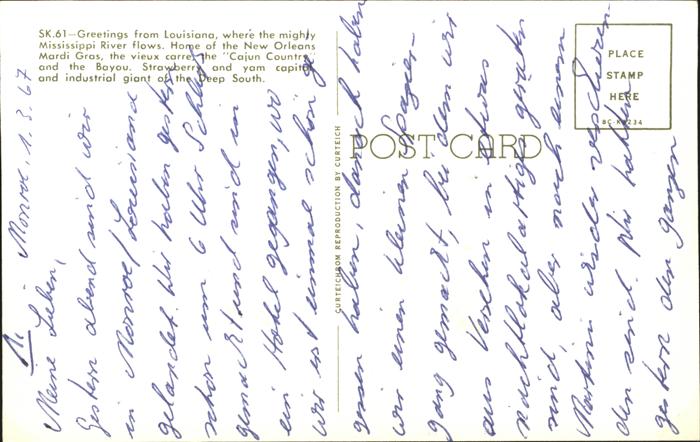 SK.61—Greetings from Louisiana, where the mighty
Mississippi River flows. Home of the New Orleans
Mardi Gras, the vieux carre, the "Cajun Country"
and the Bayou. Strawberry and yam capital
and industrial giant of the Deep South.
PLACE
STAMP
HERE
POST CARD
CURTEICHROM REPRODUCTION BY CURTEICH
1.
Monroe, 1.3.67
Meine Lieben,
Gestern abend sind wir
in Monroe/Louisiana
gelandet. Wir haben gestern
schon um 6 Uhr Schluß
gemacht und sind in
ein Hotel gegangen, wo
wir erst einmal schön ge-
gessen haben, danach haben
wir einen kleinen Spazier-
gang gemacht, bei dem wir
aus Versehen in etwas
nachtlokalartiges geraten
sind, aber nach einem
Martini wieder verschwun-
den sind. Wir hatten
gestern den ganzen